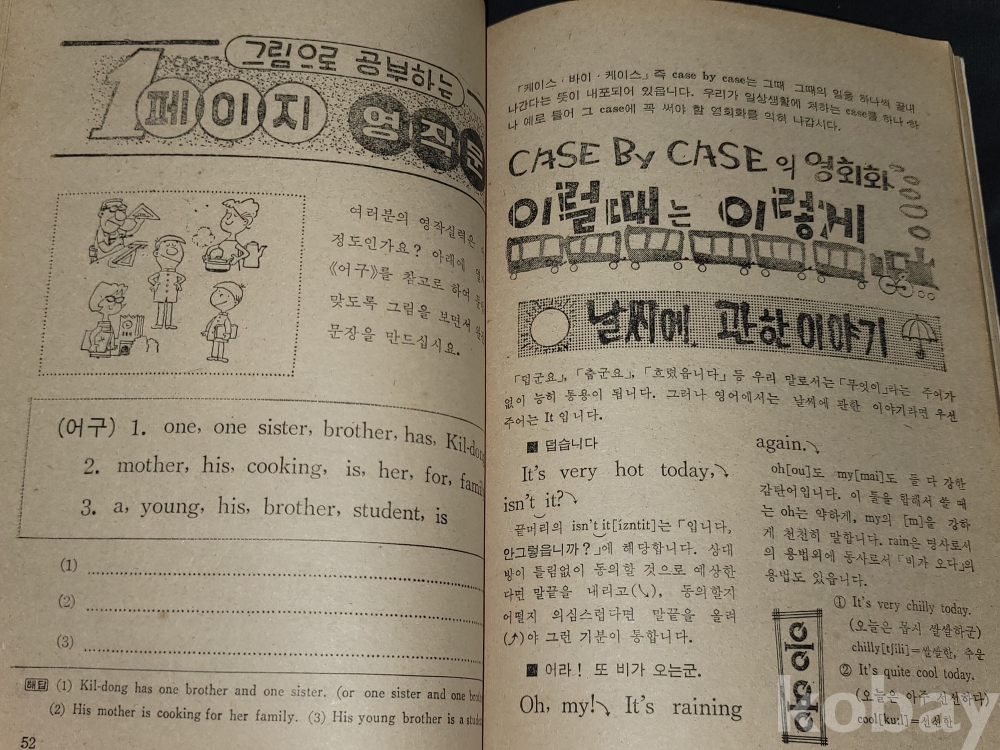 그림으로 공부하는
1페이지 영작문
여러분의 영작실력은
정도인가요? 아래에
《어구》를 참고로 하여
맞도록 그림을 보면서
문장을 만드십시요.
(어구) 1. one, one sister, brother, has, Kil-dong
2. mother, his, cooking, is, her, for,
3. a, young, his, brother, student, is
(1)
(2)
(3)
해답 (1) Kil-dong has one brother and one sister. (or one sister and one
(2) His mother is cooking for her family. (3) His young brother is a
52
「케이스·바이·케이스」 즉 case by case는 그때 그때의 일을 하나씩 끝내
나간다는 뜻이 내포되어 있읍니다. 우리가 일상생활에 처하는 case를 하나 하
나 예로 들어 그 case에 꼭 써야 할 영회화를 익혀 나갑시다.
CASE By CASE의 영회화
이럴때는 이렇게
날씨에 관한 이야기
「덥군요」, 「춥군요」, 「흐렸읍니다」 등 우리 말로서는 「무엇이」라는 주어가
없이 능히 통용이 됩니다. 그러나 영어에서는 날씨에 관한 이야기라면 우선
주어는 It 입니다.
■ 덥습니다
It's very hot today,↘
isn't it?↘
끝머리의 isn't it[ízntit]는 「입니다,
안그렇읍니까?」에 해당합니다. 상대
방이 틀림없이 동의할 것으로 예상한
다면 말끝을 내리고(↘), 동의할지
어떨지 의심스럽다면 말끝을 올려
(↗)야 그런 기분이 통합니다.
■ 어라! 또 비가 오는군.
Oh, my!↘ It's raining
again.↘
oh[ou]도 my[mai]도 둘 다 강한
감탄어입니다. 이 둘을 합해서 쓸 때
는 oh는 약하게, my의 [m]을 강하
게 천천히 말합니다. rain은 명사로서
의 용법외에 동사로서 「비가 오다」의
용법도 있읍니다.
응용
① It's very chilly today.
(오늘은 몹시 쌀쌀하군)
chilly[tʃili]=쌀쌀한, 추운
② It's quite cool today.
(오늘은 아주 선선하다)
cool[ku:l]=선선한
kobay